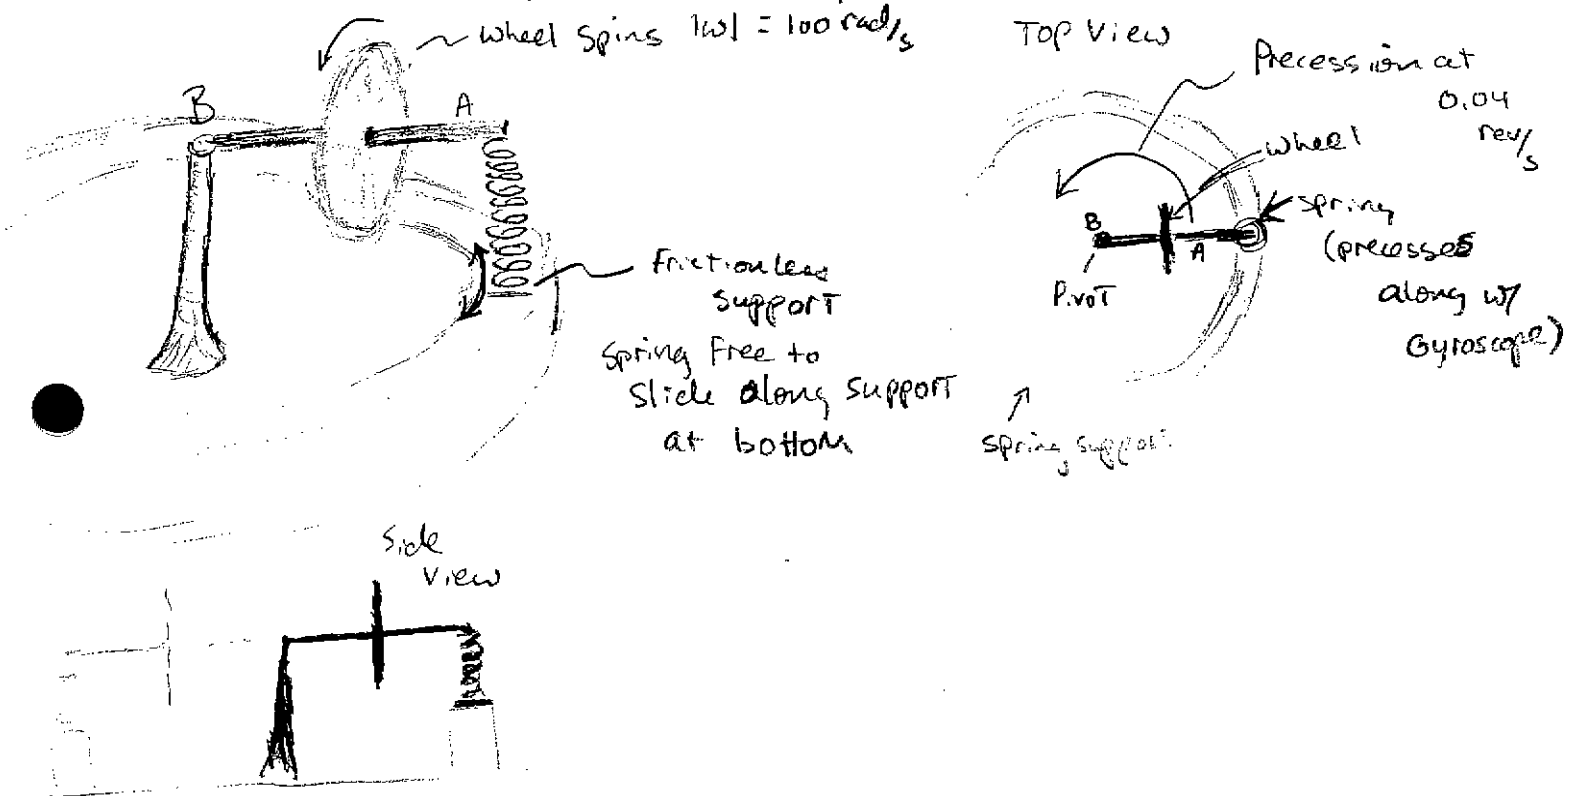 wheel spins |ω| = 100 rad/s
B
A
Frictionless
support
spring free to
slide along support
at bottom
Top View
Precession at
0.04
rev/s
wheel
spring
(precesses
along w/
Gyroscope)
B
A
Pivot
spring support
Side
View